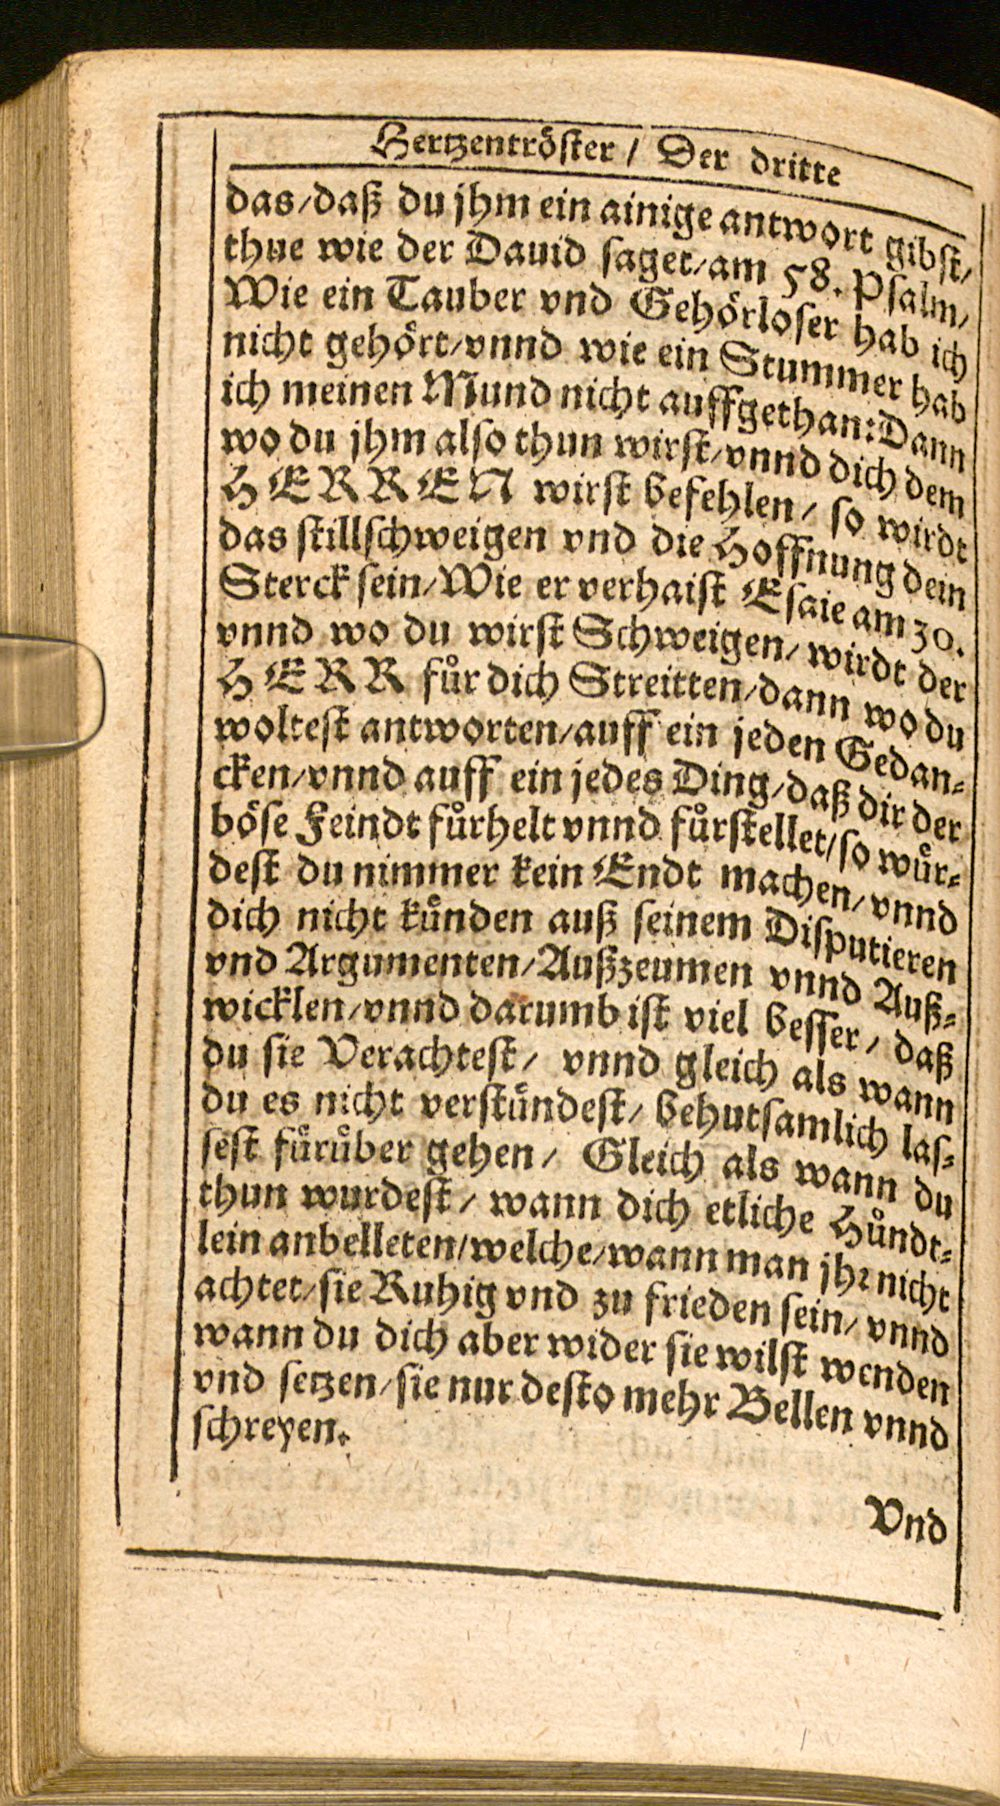 Hertzentröster / Der dritte
das/daß du jhm ein ainige antwort gibst/
thue wie der Dauid saget/am 58. Psalm/
Wie ein Tauber vnd Gehörloser hab ich
nicht gehört/vnnd wie ein Stummer hab
ich meinen Mund nicht auffgethan: Dann
wo du jhm also thun wirst/vnnd dich dem
HERREN wirst befehlen / so wirdt
das stillschweigen vnd die Hoffnung dein
Sterck sein/Wie er verhaist Esaie am 30.
vnnd wo du wirst Schweigen/wirdt der
HERR fůr dich Streitten/dann wo du
woltest antworten/auff ein jeden Gedan⸗
cken/vnnd auff ein jedes Ding/daß dir der
böse Feindt fůrhelt vnnd fůrstellet/so wůr⸗
dest du nimmer kein Endt machen/vnnd
dich nicht kůnden auß seinem Disputieren
vnd Argumenten/Außzeumen vnnd Auß⸗
wicklen/vnnd darumb ist viel besser / daß
du sie Verachtest / vnnd gleich als wann
du es nicht verstůndest/ behutsamlich las⸗
sest fůrůber gehen / Gleich als wann du
thun wurdest / wann dich etliche Hůndt⸗
lein anbelleten/welche/wann man jhr nicht
achtet/sie Ruhig vnd zu frieden sein/ vnnd
wann du dich aber wider sie wilst wenden
vnd setzen/sie nur desto mehr Bellen vnnd
schreyen.
Vnd